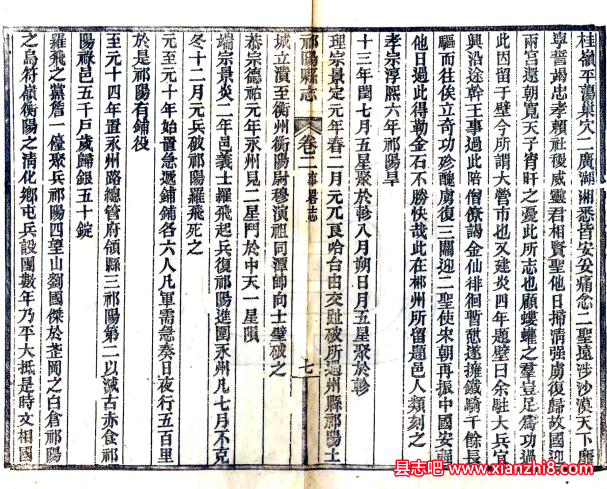 桂嶺平蕩巢穴二廣湖湘悉皆安妥痛念二聖遠涉沙漠天下靡
寧誓竭忠孝賴社稷威靈君相賢聖他日掃清强虜復歸故國迎
兩宮還朝寬天子宵旰之憂此所志也顧螻蟻之羣豈足爲功過
此因留于壁今所謂大營市也又建炎四年題壁曰余駐大兵宜
興沿途幹王事過此陪僧僚謁金仙徘徊暫憇遂擁鐵騎千餘長
驅而往俟立奇功殄醜虜復三關迎二聖使宋朝再振中國安强
他日過此得勒金石不勝快哉此在郴州所留題邑人類刻之
孝宗淳熙六年祁陽旱
十三年閏七月五星聚於軫八月朔日月五星聚於軫
祁陽縣志
卷二
事畧志
七
理宗景定元年春二月元兀良哈台由交趾破所過州縣祁陽土
城立潰至衡州衡陽尉穆演祖同潭帥向士璧破之
恭宗德祐元年永州見二星鬥於中天一星隕
端宗景炎二年邑義士羅飛起兵復祁陽進圍永州凡七月不克
冬十二月元兵破祁陽羅飛死之
元至元十年始置急遞鋪鋪各六人凡軍需急奏日夜行五百里
於是祁陽有鋪役
至元十四年置永州路總管府領縣三祁陽第二以減古赤食祁
陽祿邑五千戸歲歸銀五十錠
羅飛之黨詹一僮聚兵祁陽四望山劉國傑於歪岡之白倉祁陽
之烏符嶺衡陽之清化鄉屯兵設團數年乃平大抵是時文相國
县志吧--www.xianzhi8.com